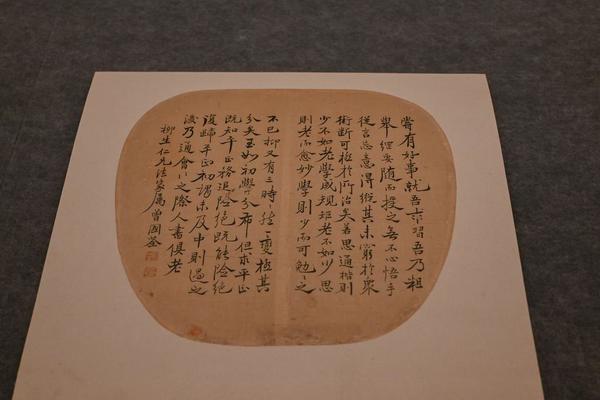 嘗有好事就吾求習吾乃粗
舉綱要隨而授之無不心悟手
從言忘意得縱其未窮於衆
術斷可極於所治矣若思通楷則
少不如老學成規矩老不如少思
則老而愈妙學則少而可勉〻之
不已抑又有三時〻然一變極其
分矣至如初學分布但求平正
既知平正務追險絕既能險絕
復歸平正初謂未及中則過之
後乃通會〻之際人書俱老
柳生仁兄法家屬曾國荃